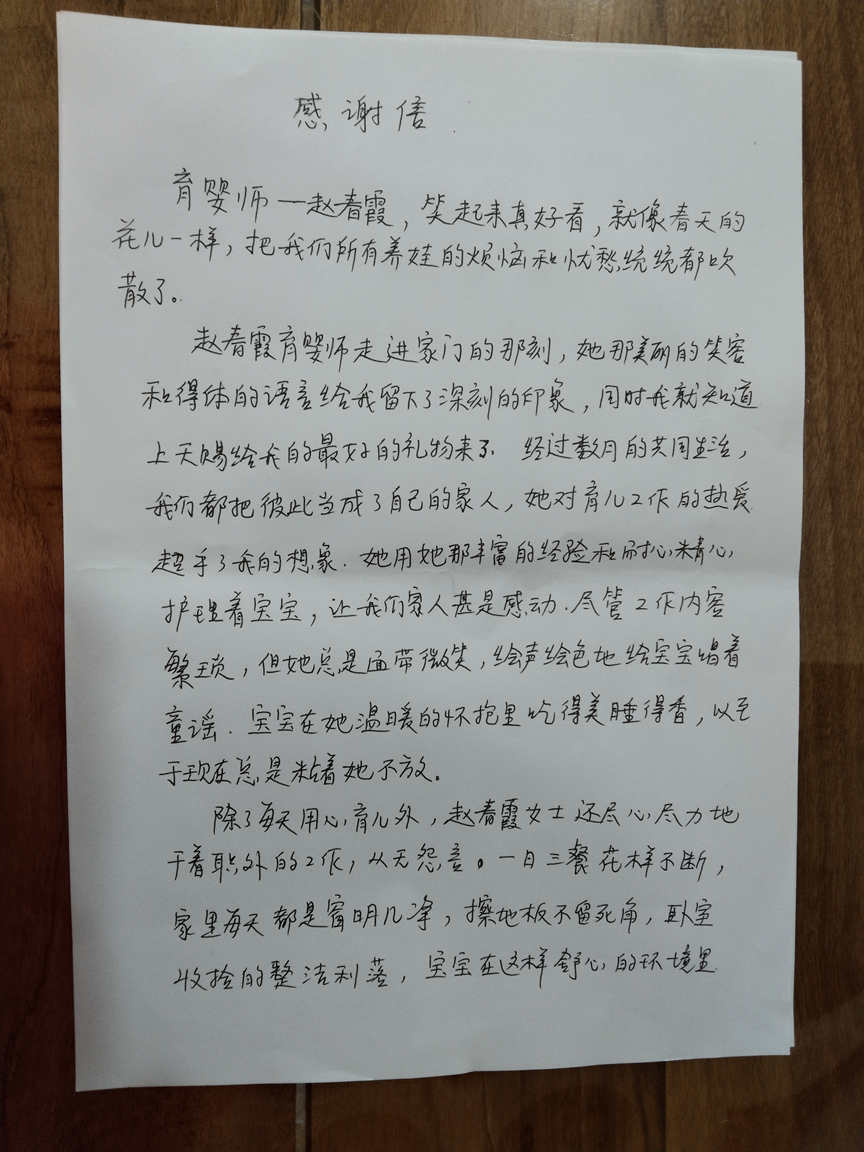 感谢信
育婴师一赵春霞，笑起来真好看，就像春天的
花儿一样，把我们所有养娃的烦恼和忧愁统统都吹
散了。
赵春霞育婴师走进家门的那刻，她那美丽的笑容
和得体的语言给我留下了深刻的印象，同时我就知道
上天赐给我的最好的礼物来了 经过数月的共同生活，
我们都把彼此当成了自己的家人，她对育儿工作的热爱
超乎了我的想象.她用她那丰富的经验和耐心精心
护理着宝宝，让我们家人甚是感动.尽管工作内容
繁琐，但她总是面带微笑，绘声绘色地给宝宝唱着
童谣.宝宝在她温暖的怀抱里吃得美睡得香，以至
于现在总是粘着她不放。
除了每天用心育儿外，赵春霞女士还尽心尽力地
干着职外的工作，从无怨言。一日三餐花样不断，
家里每天都是窗明几净，擦地板不留死角，卧室
收捡的整洁利落，宝宝在这样舒心的环境里